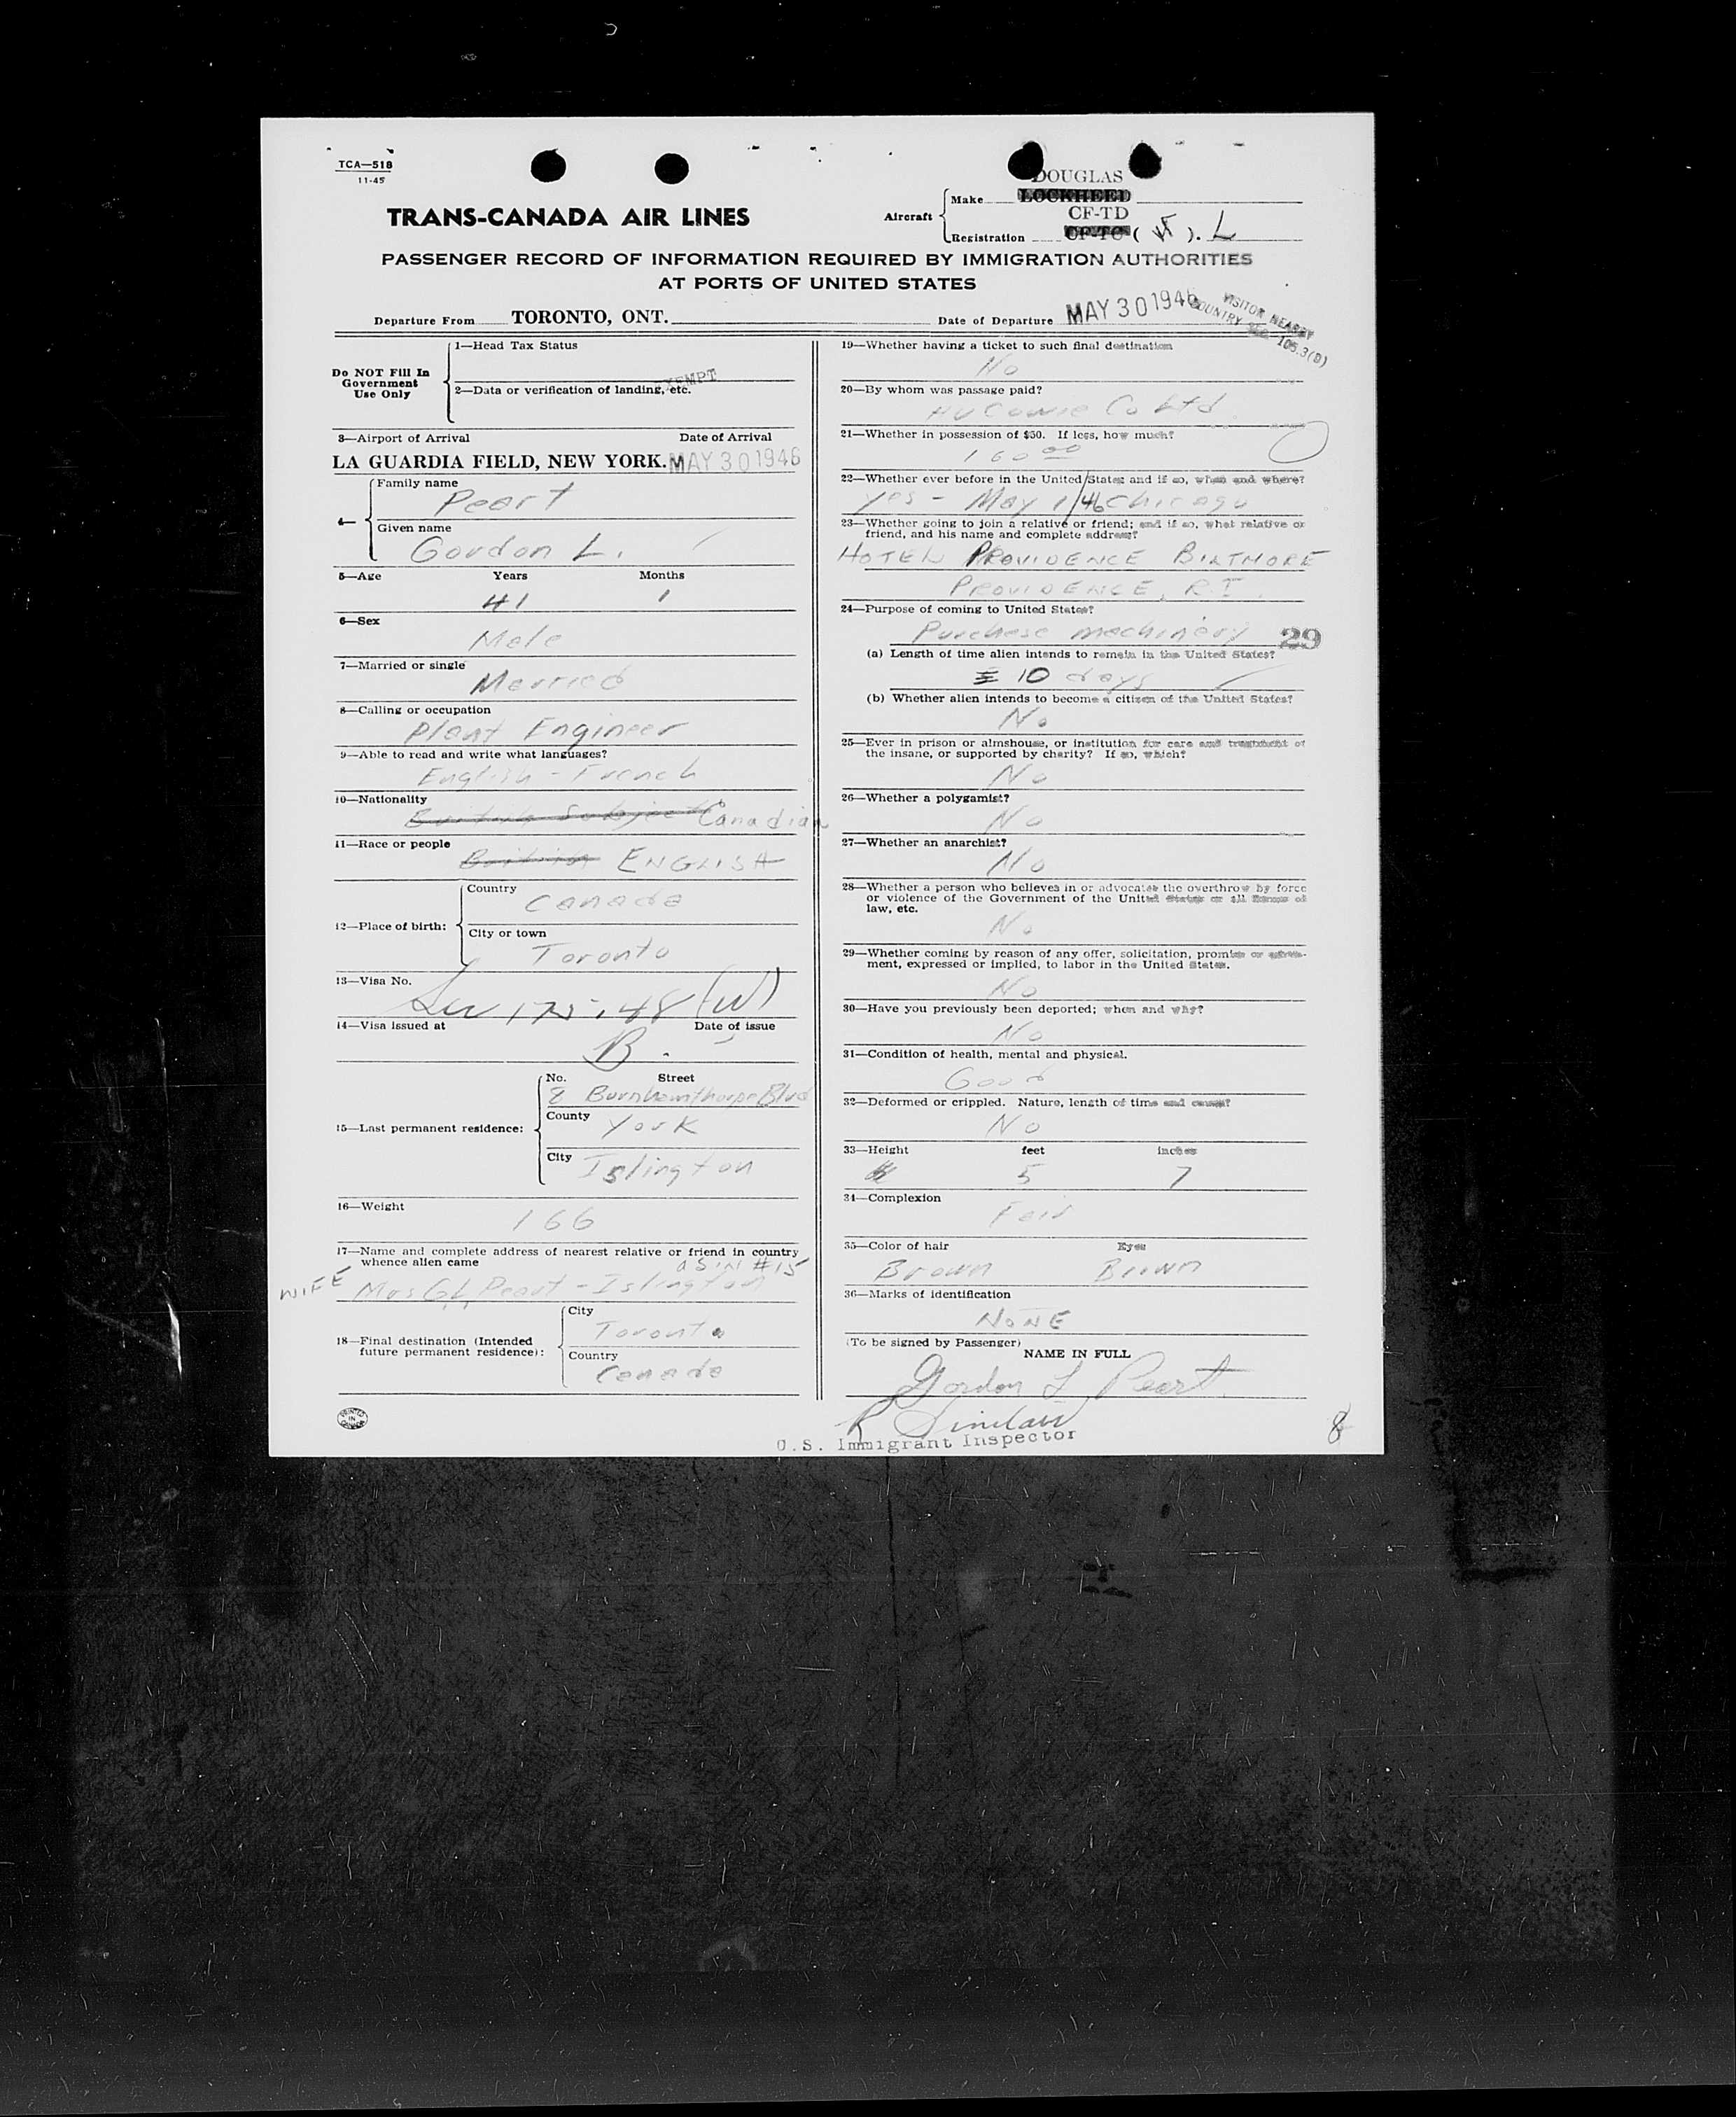 TCA—518
11-45
DOUGLAS
Aircraft
Make LOCKHEED
TRANS-CANADA AIR LINES
CF-TD
Registration CF-TC ( ). L
PASSENGER RECORD OF INFORMATION REQUIRED BY IMMIGRATION AUTHORITIES
AT PORTS OF UNITED STATES
Departure From TORONTO, ONT.
Date of Departure MAY 30 1946
VISITOR NEARBY
COUNTRY SEC. 105.3(D)
Do NOT Fill In
Government
Use Only
1—Head Tax Status
EXEMPT
2—Data or verification of landing, etc.
3—Airport of Arrival Date of Arrival
LA GUARDIA FIELD, NEW YORK. MAY 30 1946
4— Family name
Peart
Given name
Gordon L.
5—Age Years Months
41 1
6—Sex
Male
7—Married or single
Married
8—Calling or occupation
Plant Engineer
9—Able to read and write what languages?
English - French
10—Nationality
British Subject Canadian
11—Race or people
British ENGLISH
12—Place of birth:
Country
Canada
City or town
Toronto
13—Visa No.
175.48 (W)
14—Visa issued at Date of issue
B.
15—Last permanent residence:
No. Street
8 Burnhamthorpe Blvd
County
York
City
Islington
16—Weight
166
17—Name and complete address of nearest relative or friend in country
whence alien came
as in #15
WIFE Mrs GL Peart - Islington
18—Final destination (Intended
future permanent residence):
City
Toronto
Country
Canada
PRINTED
IN
CANADA
19—Whether having a ticket to such final destination
No
20—By whom was passage paid?
Co Ltd
21—Whether in possession of $50. If less, how much?
160 00
22—Whether ever before in the United States and if so, when and where?
Yes - May 1/46 Chicago
23—Whether going to join a relative or friend; and if so, what relative or
friend, and his name and complete address?
HOTEL PROVIDENCE BILTMORE
PROVIDENCE, R.I.
24—Purpose of coming to United States?
Purchase machinery 29
(a) Length of time alien intends to remain in the United States?
10 days
(b) Whether alien intends to become a citizen of the United States?
No
25—Ever in prison or almshouse, or institution for care and treatment of
the insane, or supported by charity? If so, which?
No
26—Whether a polygamist?
No
27—Whether an anarchist?
No
28—Whether a person who believes in or advocates the overthrow by force
or violence of the Government of the United States or all forms of
law, etc.
No
29—Whether coming by reason of any offer, solicitation, promise or agree-
ment, expressed or implied, to labor in the United States.
No
30—Have you previously been deported; when and why?
No
31—Condition of health, mental and physical.
Good
32—Deformed or crippled. Nature, length of time and cause?
No
33—Height feet inches
5 7
34—Complexion
Fair
35—Color of hair Eyes
Brown Brown
36—Marks of identification
NONE
(To be signed by Passenger)
NAME IN FULL
Gordon L Peart
R Sinclair
U.S. Immigrant Inspector
8